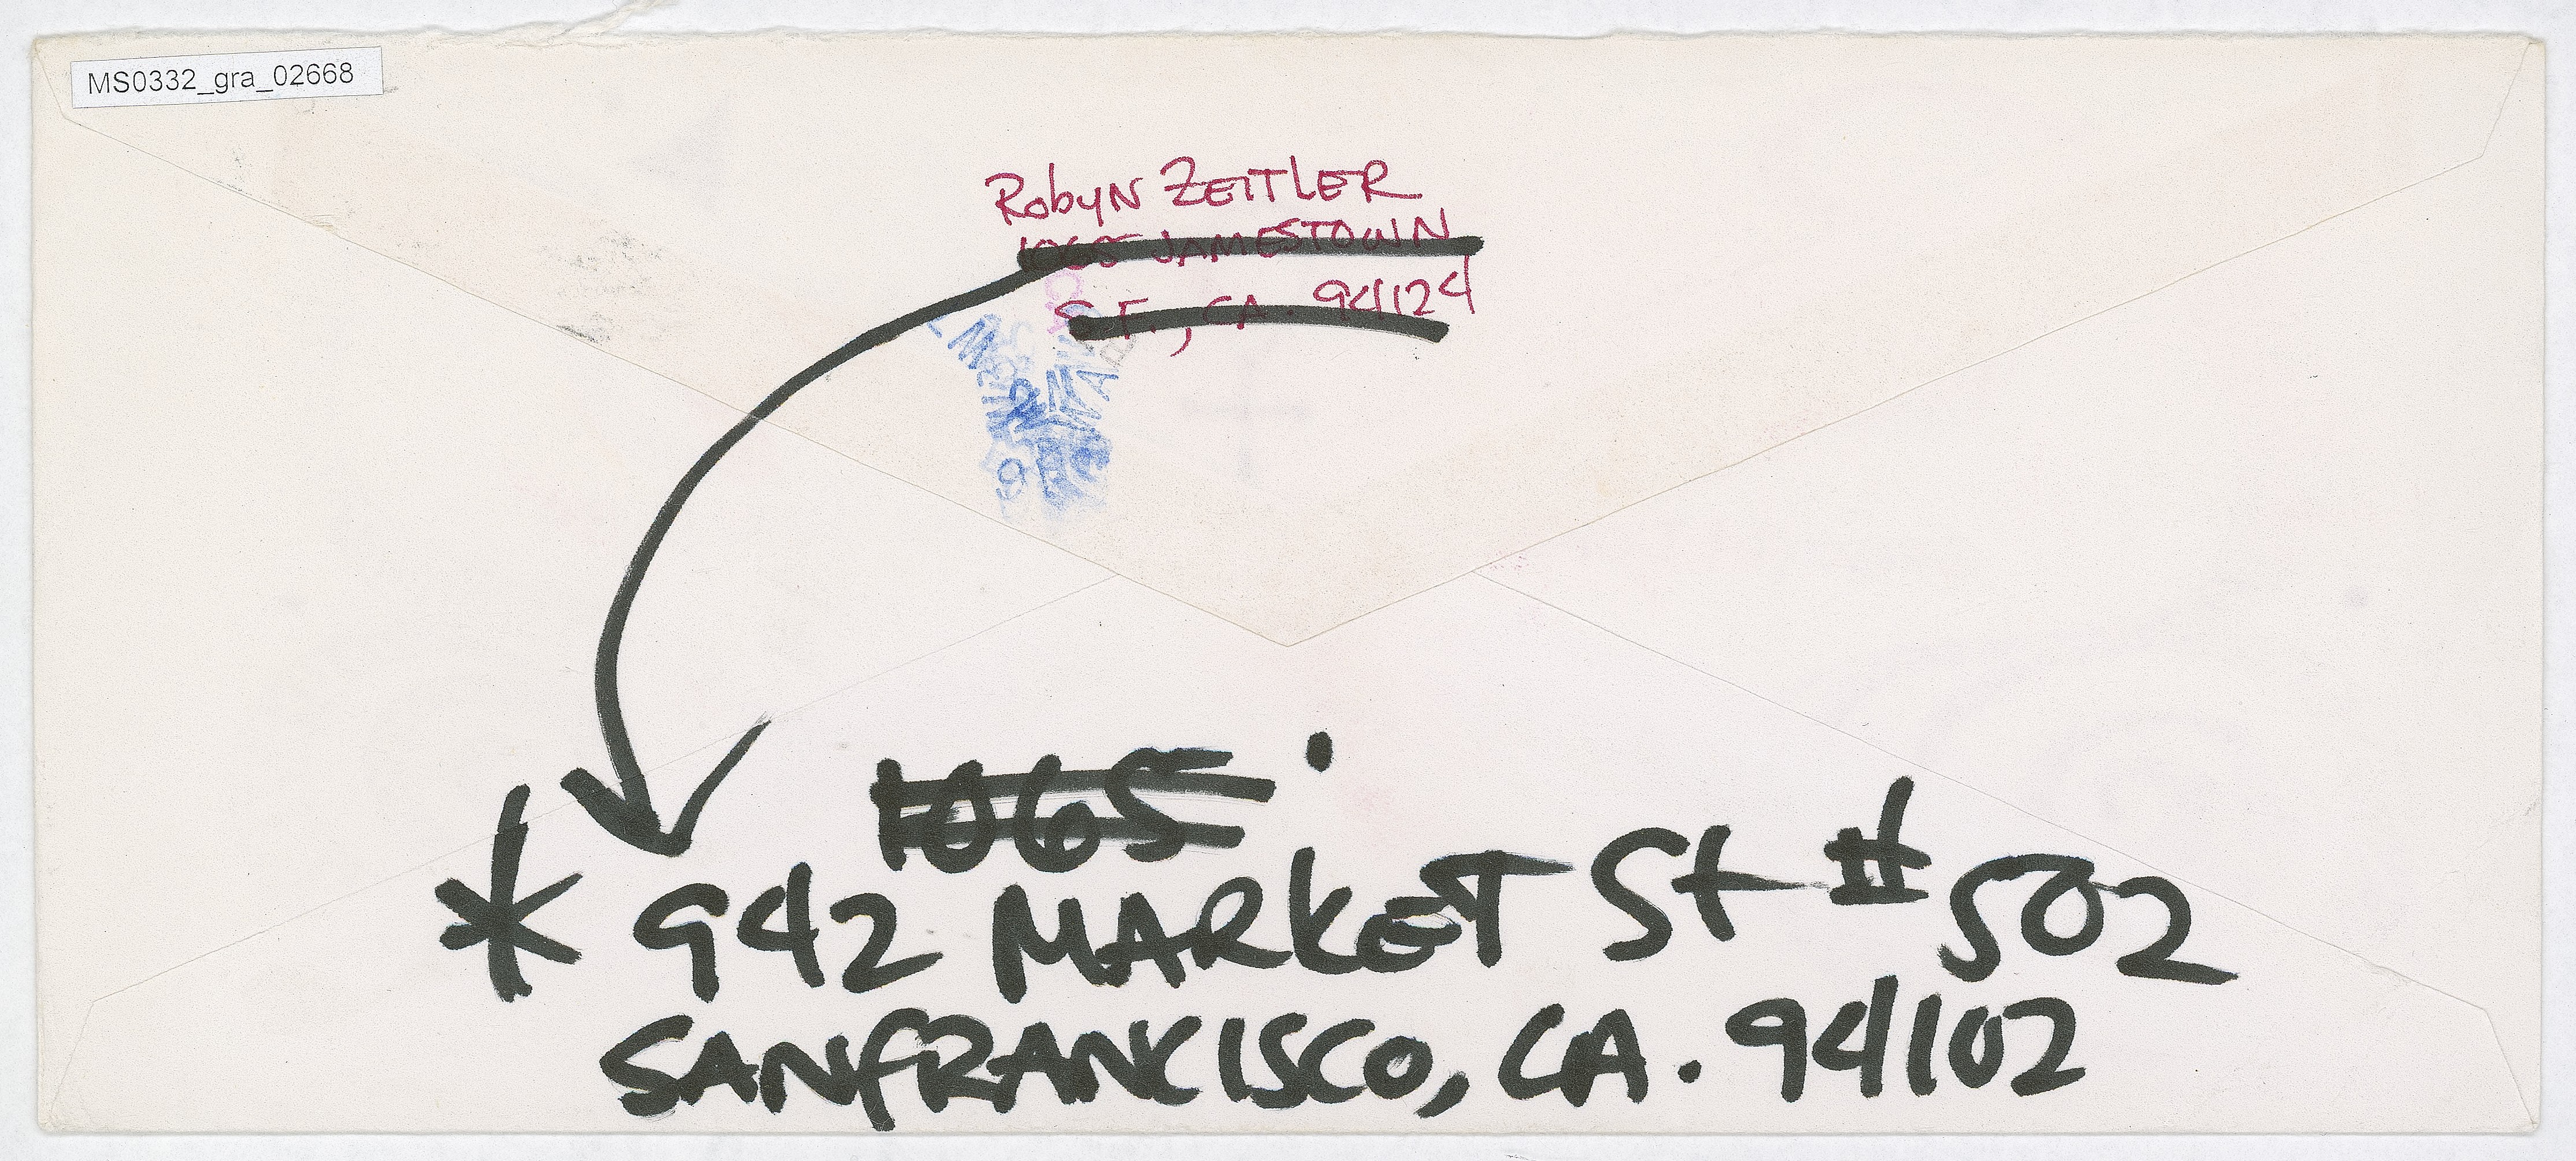 MS0332_gra_02668
Robyn ZEITLER
1065 JAMESTOWN
S.F., CA. 94124
1065
* 942 MARKET St # 502
SANFRANCISCO, CA. 94102